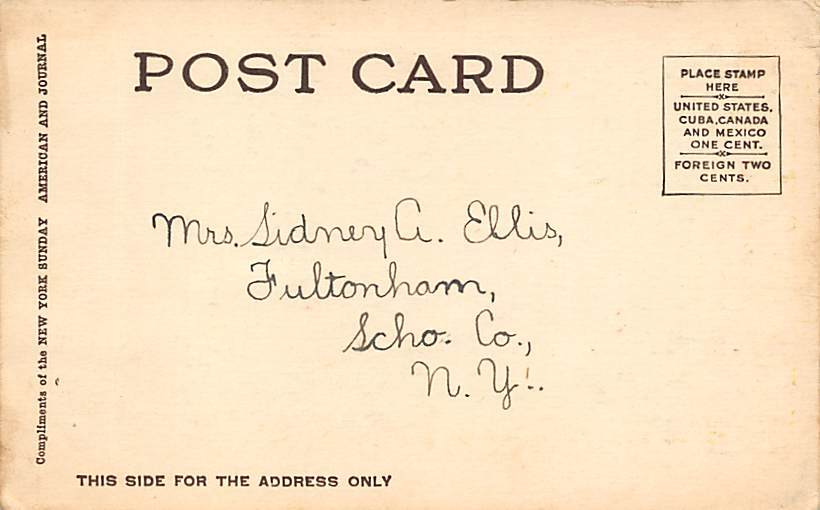 POST CARD
PLACE STAMP
HERE
UNITED STATES,
CUBA, CANADA
AND MEXICO
ONE CENT.
FOREIGN TWO
CENTS.
Compliments of the NEW YORK SUNDAY AMERICAN AND JOURNAL
Mrs. Sidney A. Ellis,
Fultonham,
Scho. Co.,
N. Y.
THIS SIDE FOR THE ADDRESS ONLY